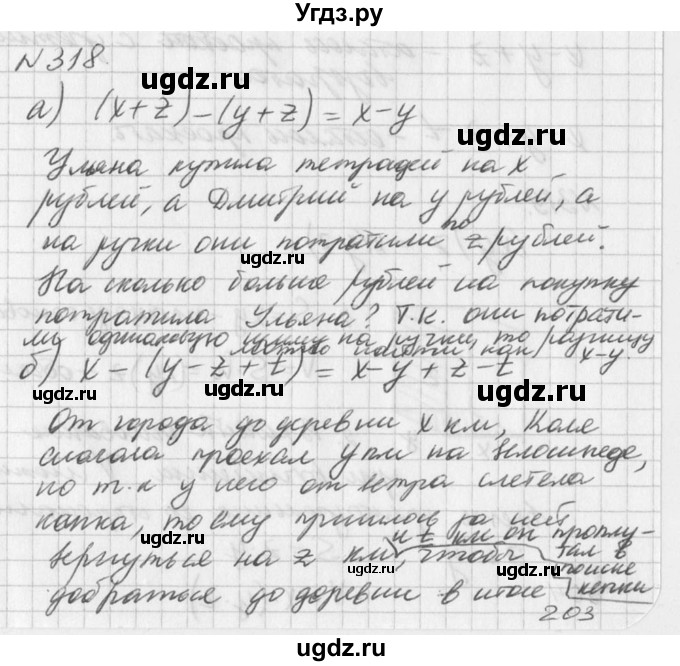 Угдз.ру
N 318
а) (x+z)-(y+z)=x-y
Ульяна купила тетрадей на x
рублей, а Дмитрий на y рублей, а
на ручки они потратили по z рублей.
На сколько больше рублей на покупку
потратила Ульяна? Т.к. они потрати-
ли одинаковую сумму на ручки, то разницу
можно найти как x-y
б) x-(y-z+t)=x-y+z-t
От города до деревни x км, Коля
сначала проехал y км на велосипеде,
но т.к у него от ветра слетела
кепка, то ему пришлось за ней
вернуться на z км, и t км он проплу-
тал в поиске кепки
чтобы
добраться до деревни в итоге
203
ugdz.ru
ugdz.ru
ugdz.ru
ugdz.ru
ugdz.ru
ugdz.ru
ugdz.ru
ugdz.ru
ugdz.ru
ugdz.ru
ugdz.ru
ugdz.ru
ugdz.ru
Угдз.ру